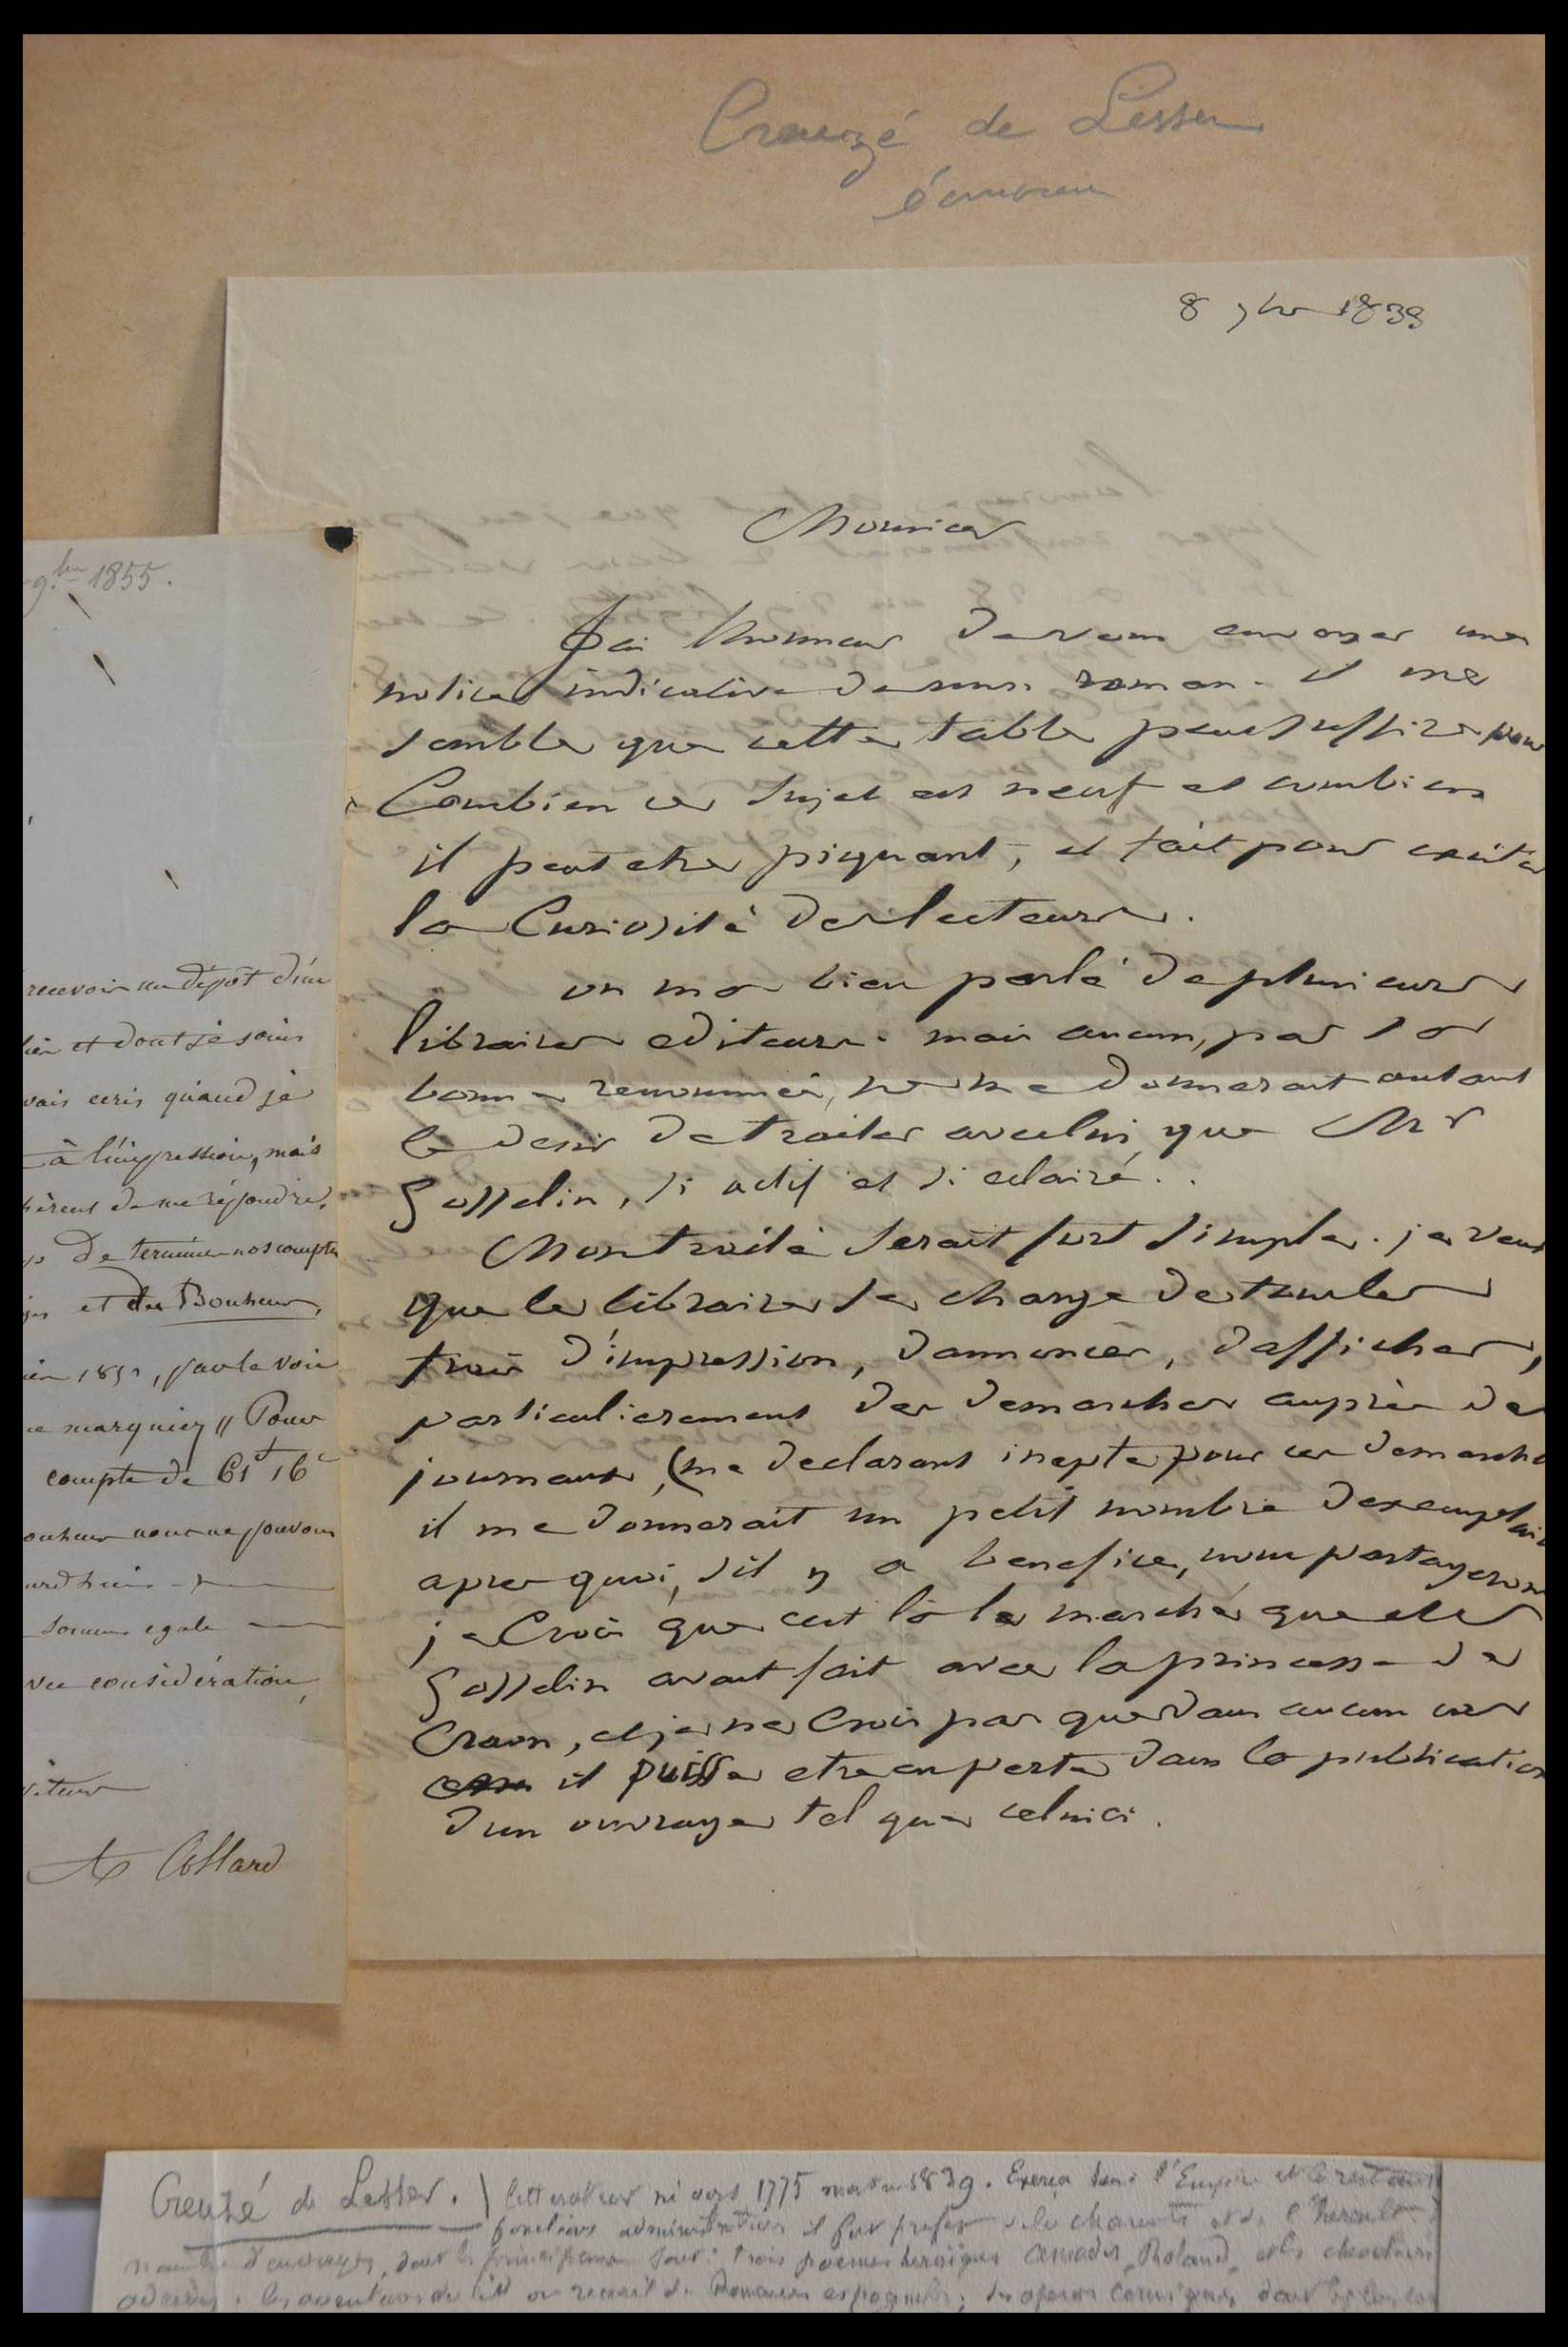 Creuzé de Lesser
écrivain
8 9bre 1839
Monsieur
J'ai l'honneur de vous envoyer une
notice indicative de mon roman. il me
semble que cette table peut suffire pour
Combien ce sujet est neuf et combien
il peut etre piquant, et fait pour exciter
la Curiosité des lecteurs.
on m'a bien parlé de plusieurs
libraires editeurs. mais aucun, par sa
bonne renommée, ne me donnerait autant
le desir de traiter avec lui que Mr
Gosselin, si actif et si eclairé..
Mon traité serait fort simple. je veux
que le libraire se charge de tous les
frais d'impression, d'annoncer, d'afficher,
particulierement des demarches auprès des
journaux, (me declarant inepte pour ces demarches
il me donnerait un petit nombre d'exemplaires
apres quoi, s'il y a benefice, nous partagerons
je Crois que c'est là le marché que
Gosselin avait fait avec la princesse de
Craon, et je ne Crois pas que dans aucun cas
il puisse etre en perte dans la publication
d'un ouvrage tel que celui ci.
9.bre 1855.
recevoir un dépôt d'un
et dont je suis
vais ecris quand je
à l'impression, mais
de me répondre,
De terminer nos comptes
et du Bonheur,
par la voie
marquiez " Pour
compte de 61f 16c
nous ne pouvons
somme egale
considération,
A Collard
Creuzé de Lesser. \ litterateur né vers 1775 mort en 1839. Exerça sous l'Empire et la restauration
fonctions administratives il fut prefet de la charente et de l'Herault
nombre d'ouvrages, dont les principaux sont: trois poemes heroiques Amadis, Roland, et les chevaliers
les aventures du Cid ou recueil de Romances espagnoles; des operas comiques, dont